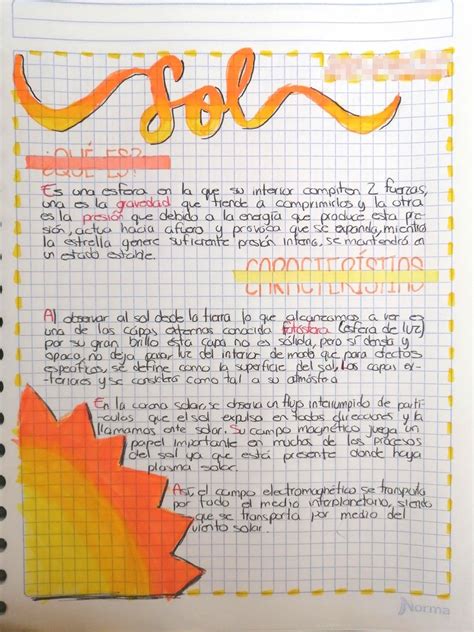 Sol
¿QUÉ ES?
Es una esfera en la que su interior compiten 2 fuerzas,
una es la gravedad que tiende a comprimirlos y la otra
es la presión que debido a la energía que produce esta pre-
sión, actua hacia afuera y provoca que se expanda, mientra
la estrella genere suficiente presión interna, se mantendrá en
un estado estable.
CARACTERÍSTIAS
Al observar al sol desde la tierra lo que alcanzamos a ver es
una de las capas externas conocida fotósfera (esfera de luz)
por su gran brillo esta capa no es sólida, pero sí densa y
opaca, no deja pasar luz del interior de modo que para efectos
específicos, se define como la superficie del sol, las capas ex-
teriores ya se considera como tal a su atmósfera
En la corona solar, se observa un flujo interrumpido de partí-
culas que el sol expulsa en todas direcciones y la
llamamos vinte solar. Su campo magnético juega un
papel importante en muchos de los procesos
del sol ya que está presente donde haya
plasma solar.
Así, el campo electromagnético se transporta
por todo el medio interplanetario, siendo
que se transporta por medio del
viento solar.
Norma